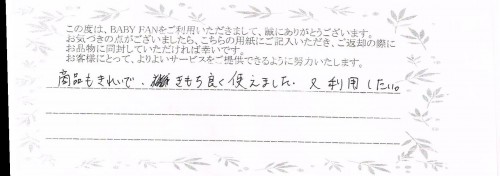 この度は、BABY FANをご利用いただきまして、誠にありがとうございます。
お気づきの点がございましたら、こちらの用紙にご記入いただき、ご返却の際に
お品物に同封していただければ幸いです。
お客様にとって、よりよいサービスをご提供できるように努力いたします。
商品もきれいで、きもち良く使えました。又利用したい。